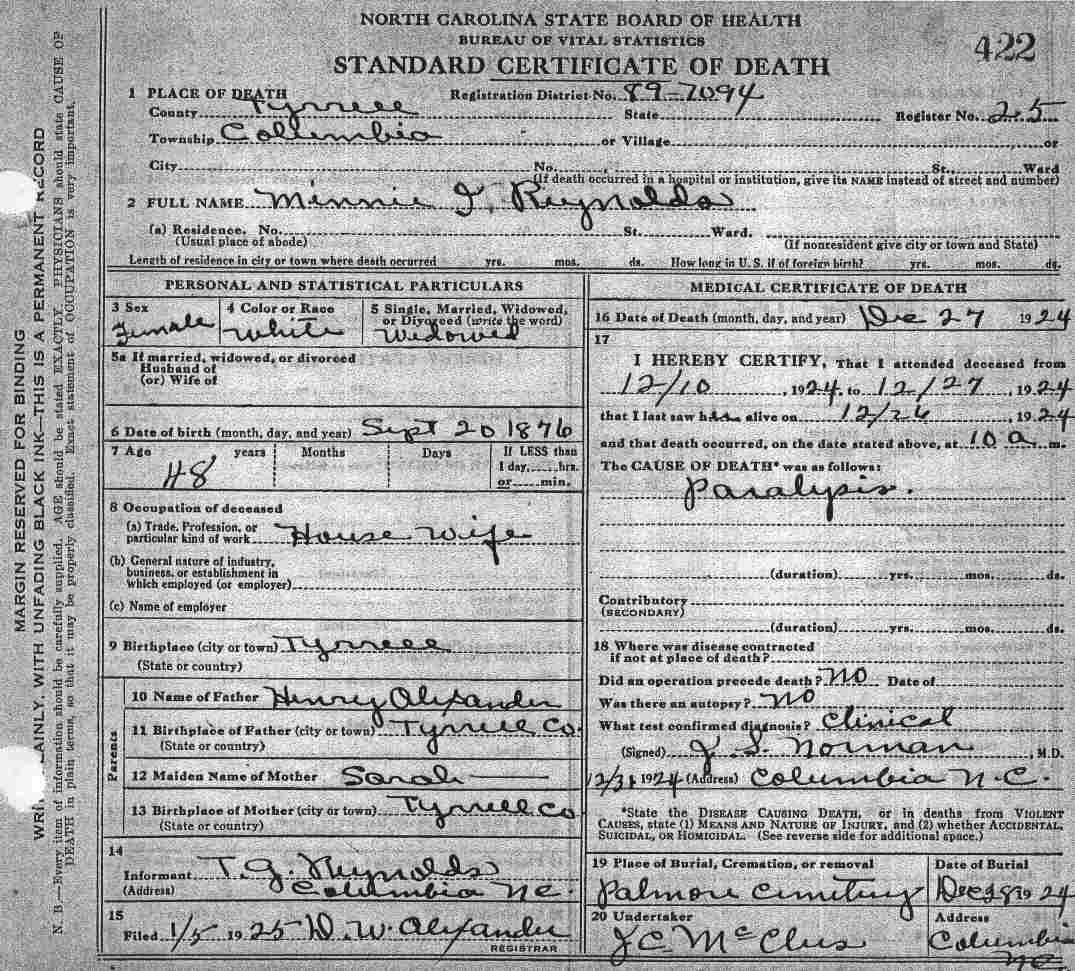 NORTH CAROLINA STATE BOARD OF HEALTH
BUREAU OF VITAL STATISTICS
STANDARD CERTIFICATE OF DEATH
422
1 PLACE OF DEATH Registration District No. 89-7094
County Tyrrell State Register No. 25
Township Collumbia or Village or
City No. St., Ward
(If death occurred in a hospital or institution, give its NAME instead of street and number)
2 FULL NAME Minnie J. Reynolds
(a) Residence. No. St. Ward.
(Usual place of abode) (If nonresident give city or town and State)
Length of residence in city or town where death occurred yrs. mos. ds. How long in U. S. if of foreign birth? yrs. mos. ds.
PERSONAL AND STATISTICAL PARTICULARS
3 Sex 4 Color or Race 5 Single, Married, Widowed,
or Divorced (write the word)
Female White Widowed
5a If married, widowed, or divorced
Husband of
(or) Wife of
6 Date of birth (month, day, and year) Sept 20 1876
7 Age years Months Days If LESS than
48 1 day, hrs.
or min.
8 Occupation of deceased
(a) Trade, Profession, or
particular kind of work House Wife
(b) General nature of industry,
business, or establishment in
which employed (or employer)
(c) Name of employer
9 Birthplace (city or town) Tyrrell
(State or country)
Parents
10 Name of Father Henry Alexander
11 Birthplace of Father (city or town) Tyrrell Co.
(State or country)
12 Maiden Name of Mother Sarah
13 Birthplace of Mother (city or town) Tyrrell Co
(State or country)
14
Informant T. G. Reynolds
(Address) Columbia NC.
15
Filed 1/5 1925 D. W. Alexander
REGISTRAR
MEDICAL CERTIFICATE OF DEATH
16 Date of Death (month, day, and year) Dec 27 1924
17
I HEREBY CERTIFY, That I attended deceased from
12/10, 1924, to 12/27, 1924
that I last saw her alive on 12/26, 1924
and that death occurred, on the date stated above, at 10 a m.
The CAUSE OF DEATH* was as follows:
Paralysis.
(duration) yrs. mos. ds.
Contributory
(SECONDARY)
(duration) yrs. mos. ds.
18 Where was disease contracted
if not at place of death?
Did an operation precede death? NO Date of
Was there an autopsy? NO
What test confirmed diagnosis? Clinical
(Signed) J. S. Norman, M.D.
12/31, 1924 (Address) Columbia N.C.
*State the DISEASE CAUSING DEATH, or in deaths from VIOLENT
CAUSES, state (1) MEANS AND NATURE OF INJURY, and (2) whether ACCIDENTAL,
SUICIDAL, OR HOMICIDAL. (See reverse side for additional space.)
19 Place of Burial, Cremation, or removal Date of Burial
Palmore Cemetery Dec 28 1924
20 Undertaker Address
J C McClus Columbia
NC
MARGIN RESERVED FOR BINDING
PLAINLY, WITH UNFADING BLACK INK—THIS IS A PERMANENT RECORD
N. B.—Every item of information should be carefully supplied. AGE should be stated EXACTLY. PHYSICIANS should state CAUSE OF
DEATH in plain terms, so that it may be properly classified. Exact statement of OCCUPATION is very important.